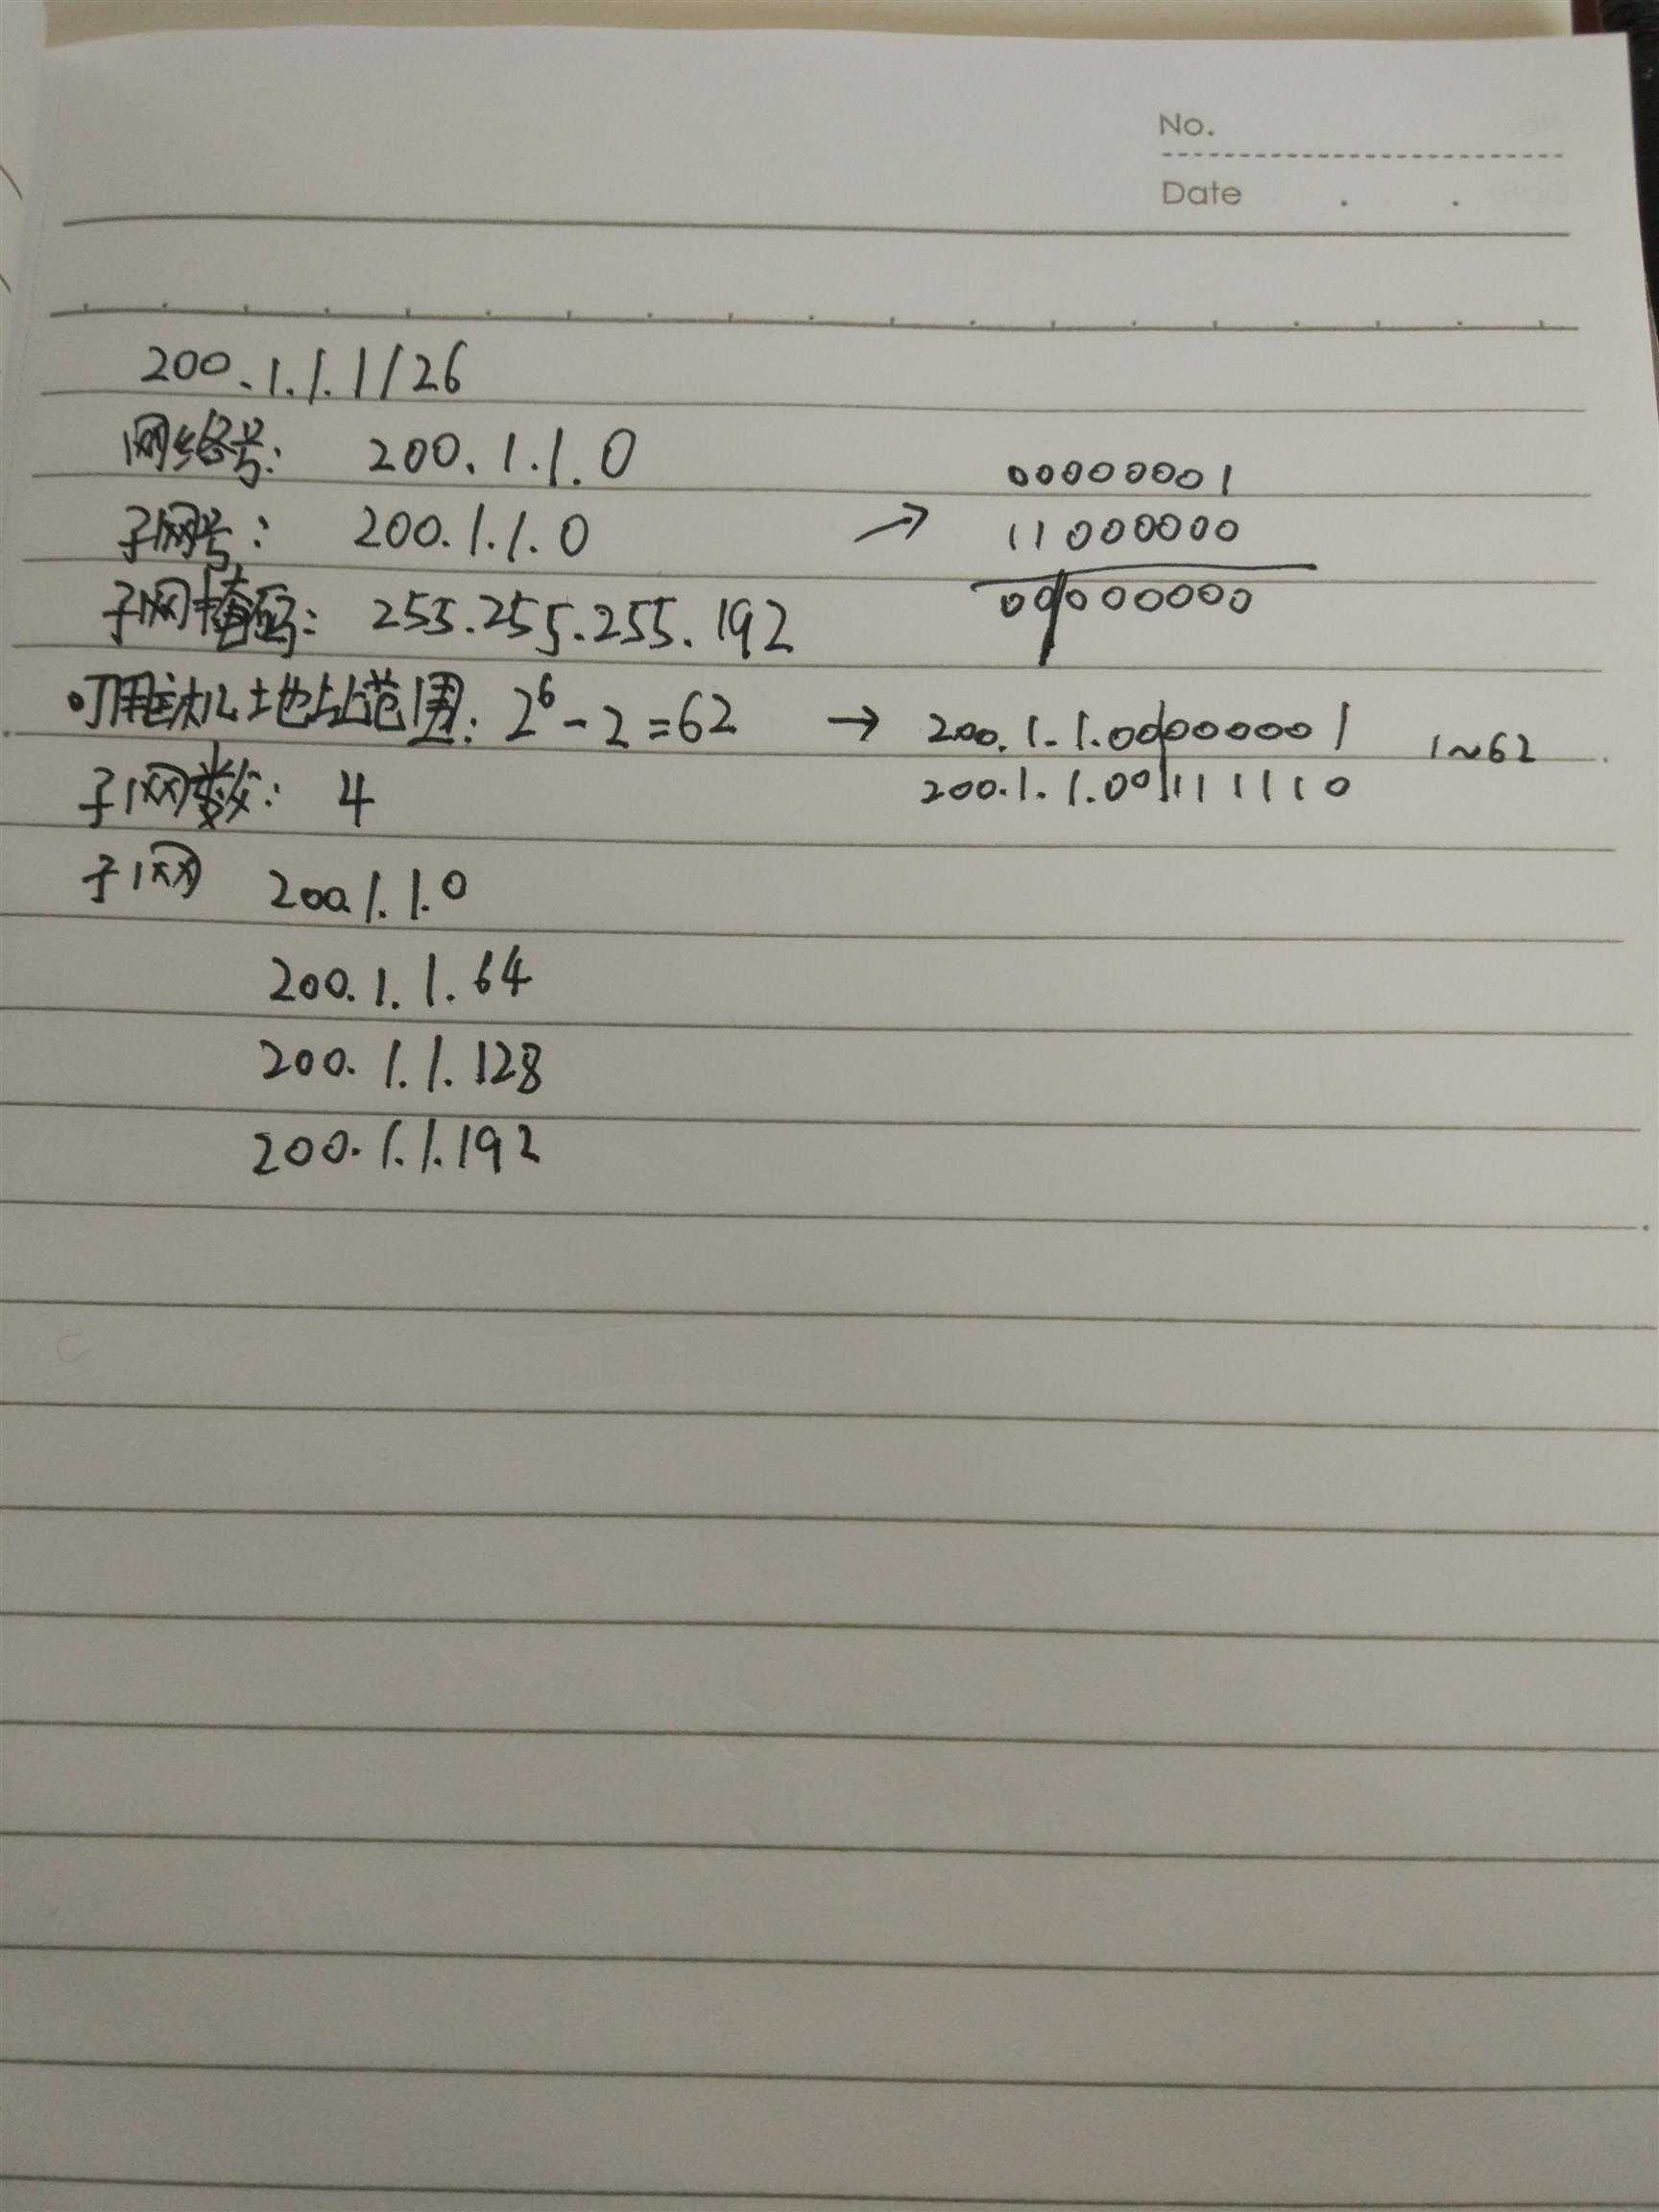 No.
Date
200.1.1.1/26
网络号: 200.1.1.0
00000001
子网号: 200.1.1.0 → 11000000
00000000
子网掩码: 255.255.255.192
可用主机地址范围: 2⁶-2=62 → 200.1.1.00000001 1~62
200.1.1.00111110
子网数: 4
子网 200.1.1.0
200.1.1.64
200.1.1.128
200.1.1.192